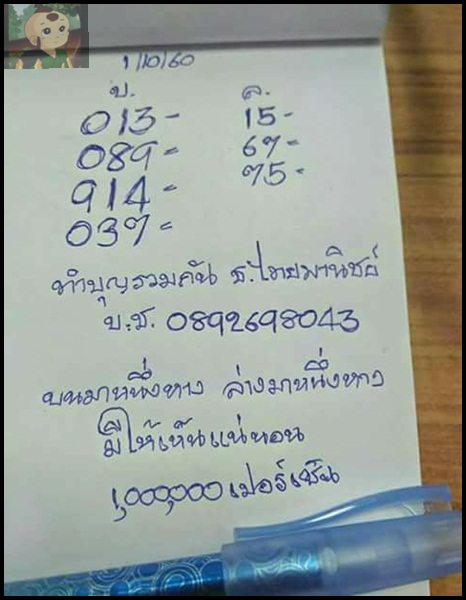 1/10/60
บ. ล.
013- 15-
089= 67=
914= 75=
037=
ทำบุญรวมคัน ธ.ไทยพานิชย์
บ.ช. 0892698043
บนมาหนึ่งหาง ล่างมาหนึ่งหาง
มีให้เห็นแน่นอน
1,000,000 เปอร์เซ็น